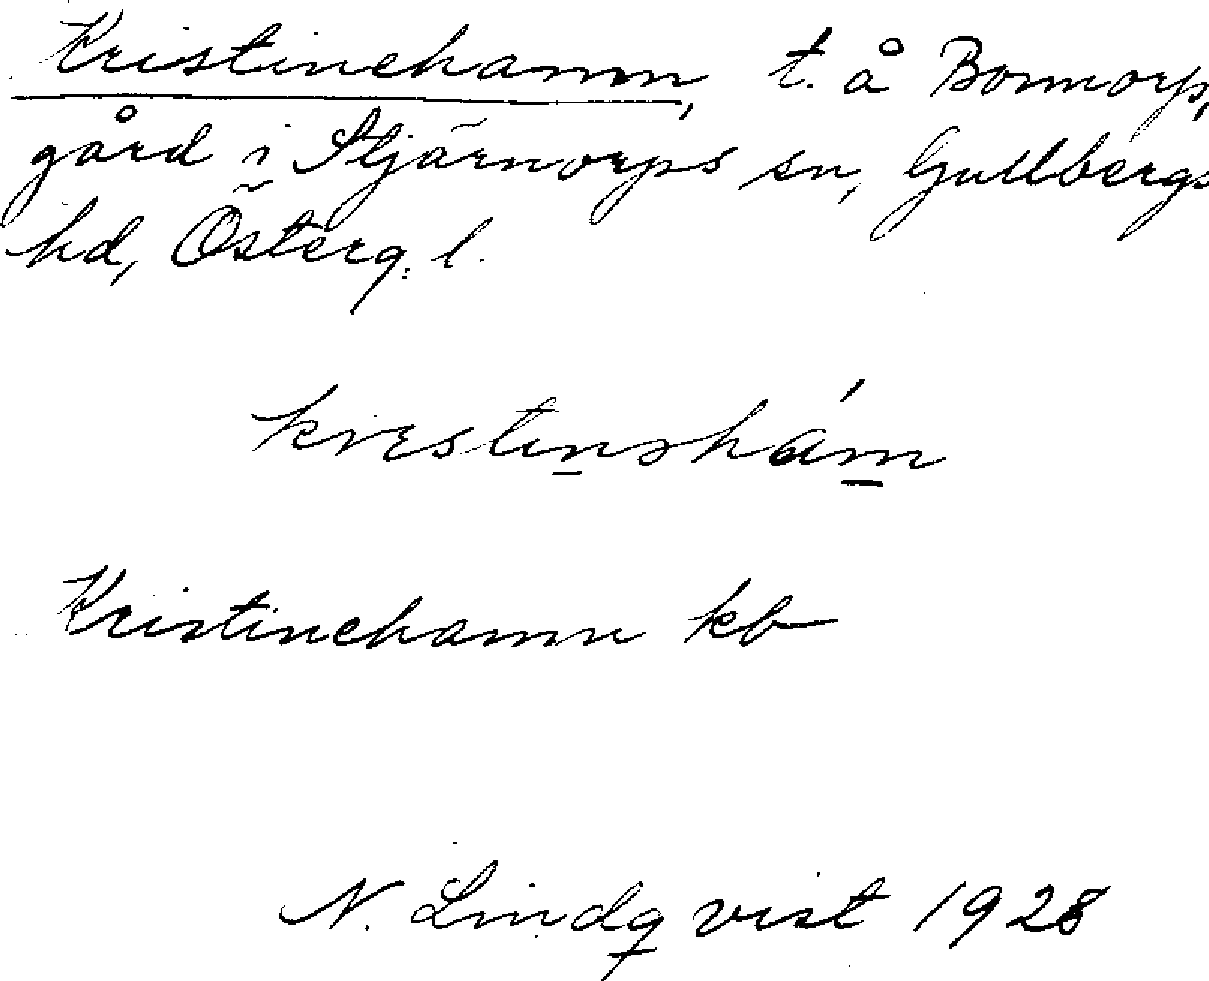 Kristinehamn, t. å Bonnorp,
gård i Stjärnorps sn, Gullbergs
hd, Österg. l.
krɪstɪnəhám
Kristinehamn kb
N. Lindqvist 1928